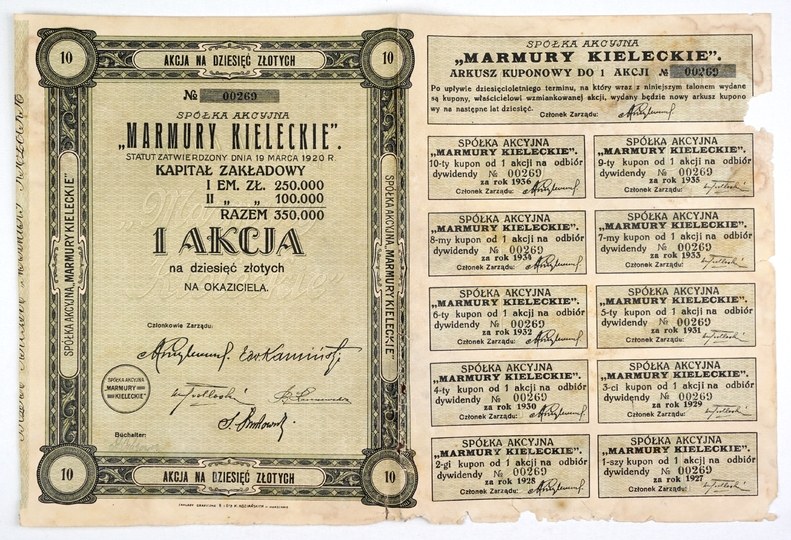 10
AKCJA NA DZIESIĘĆ ZŁOTYCH
10
№ 00269
SPÓŁKA AKCYJNA
„MARMURY KIELECKIE".
STATUT ZATWIERDZONY DNIA 19 MARCA 1920 R.
KAPITAŁ ZAKŁADOWY
I EM. ZŁ. 250.000
II „ „ 100.000
RAZEM 350.000
1 AKCJA
na dziesięć złotych
NA OKAZICIELA.
Członkowie Zarządu:
SPÓŁKA AKCYJNA
„MARMURY
KIELECKIE"
Buchalter:
SPÓŁKA AKCYJNA „MARMURY KIELECKIE"
SPÓŁKA AKCYJNA „MARMURY KIELECKIE"
10
AKCJA NA DZIESIĘĆ ZŁOTYCH
10
SPÓŁKA AKCYJNA
„MARMURY KIELECKIE".
ARKUSZ KUPONOWY DO 1 AKCJI № 00269
Po upływie dziesięcioletniego terminu, na który wraz z niniejszym talonem wydane
są kupony, właścicielowi wzmiankowanej akcji, wydany będzie nowy arkusz kupono
wy na następne lat dziesięć.
Członek Zarządu:
SPÓŁKA AKCYJNA
„MARMURY KIELECKIE".
10-ty kupon od 1 akcji na odbiór
dywidendy № 00269
za rok 1936
Członek Zarządu:
SPÓŁKA AKCYJNA
„MARMURY KIELECKIE".
9-ty kupon od 1 akcji na odbiór
dywidendy № 00269
za rok 1935
Członek Zarządu:
SPÓŁKA AKCYJNA
„MARMURY KIELECKIE".
8-my kupon od 1 akcji na odbiór
dywidendy № 00269
za rok 1934
Członek Zarządu:
SPÓŁKA AKCYJNA
„MARMURY KIELECKIE".
7-my kupon od 1 akcji na odbiór
dywidendy № 00269
za rok 1933
Członek Zarządu:
SPÓŁKA AKCYJNA
„MARMURY KIELECKIE".
6-ty kupon od 1 akcji na odbiór
dywidendy № 00269
za rok 1932
Członek Zarządu:
SPÓŁKA AKCYJNA
„MARMURY KIELECKIE".
5-ty kupon od 1 akcji na odbiór
dywidendy № 00269
za rok 1931
Członek Zarządu:
SPÓŁKA AKCYJNA
„MARMURY KIELECKIE".
4-ty kupon od 1 akcji na odbiór
dywidendy № 00269
za rok 1930
Członek Zarządu:
SPÓŁKA AKCYJNA
„MARMURY KIELECKIE".
3-ci kupon od 1 akcji na odbiór
dywidendy № 00269
za rok 1929
Członek Zarządu:
SPÓŁKA AKCYJNA
„MARMURY KIELECKIE".
2-gi kupon od 1 akcji na odbiór
dywidendy № 00269
za rok 1928
Członek Zarządu:
SPÓŁKA AKCYJNA
„MARMURY KIELECKIE".
1-szy kupon od 1 akcji na odbiór
dywidendy № 00269
za rok 1927
Członek Zarządu: